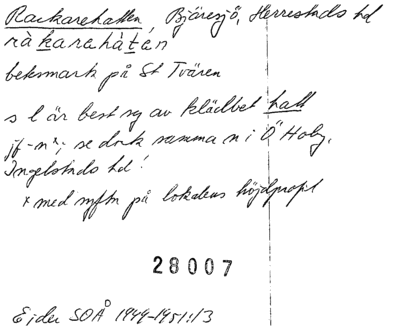 Rackarehatten, Bjäresjö, Herrestads hd
ràkarahàtén
betesmark på St Tvären
s l är best sg av klädbet hatt
jf -n*; se dock samma n i Ö Hoby,
Ingelstads hd!
* med syftn på lokalens höjdprofil
28007
Ejder SOÅ 1949-1951:13